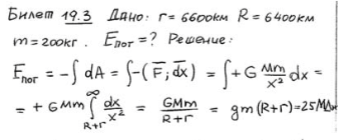 Билет 19.3 Дано: r=6600км R=6400км
m=200кг. Eпот=? Решение:
Eпот = -∫dA = ∫-(F̅; d̅x̅) = ∫+G Mm/x² dx =
= +GMm ∫_{R+r}^{∞} dx/x² = GMm/(R+r) = gm(R+r)=25МДж